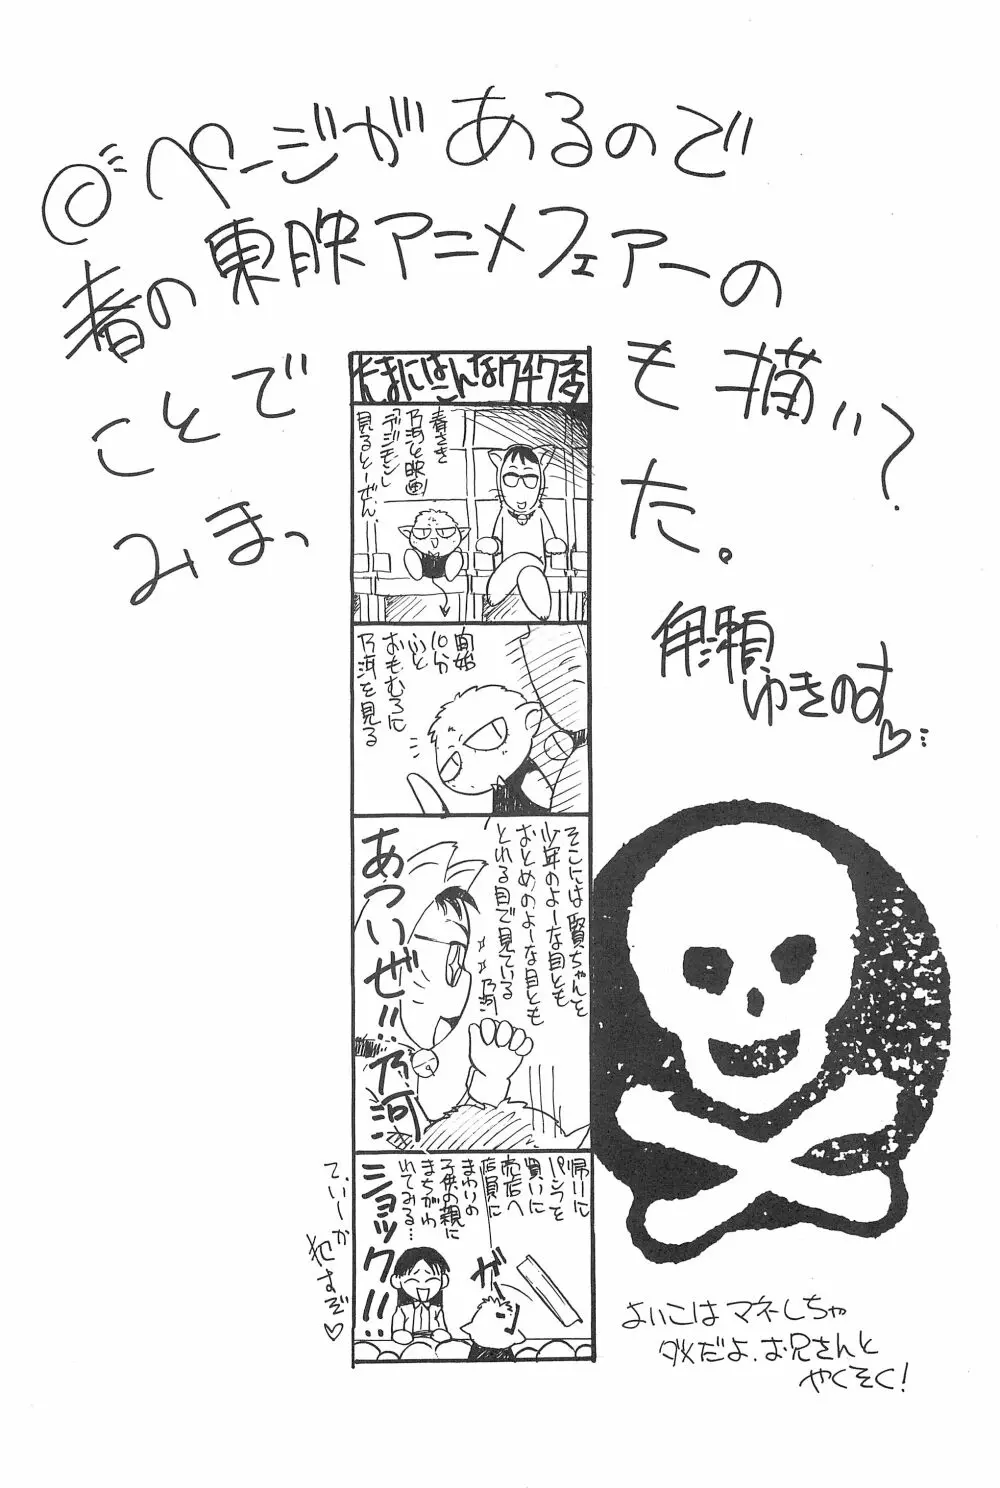 ◎ページがあるので
春の東映アニメフェアーの
ことでも描い?
みまった。
角瀬
ゆきのす♡
たまにはこんなウチワネタ
春さき
乃河と映画
「デジモン」
見るとーぜん
開始
10分
ふと
おもむろに
乃河を見る
そこには賢ちゃんと
少年のよーな目とも
おとめのよーな目とも
とれる目で見ている
乃河
あついぜ!!乃河!!
帰りに
パンフを
買いに
売店へ
店員に
まわりの
子供の親に
まちがわ
れてみる…
ショック!!
ガーン
てぃーか
犯すぞ♡
よいこはマネしちゃ
ダメだよ。お兄さんと
やくそく!